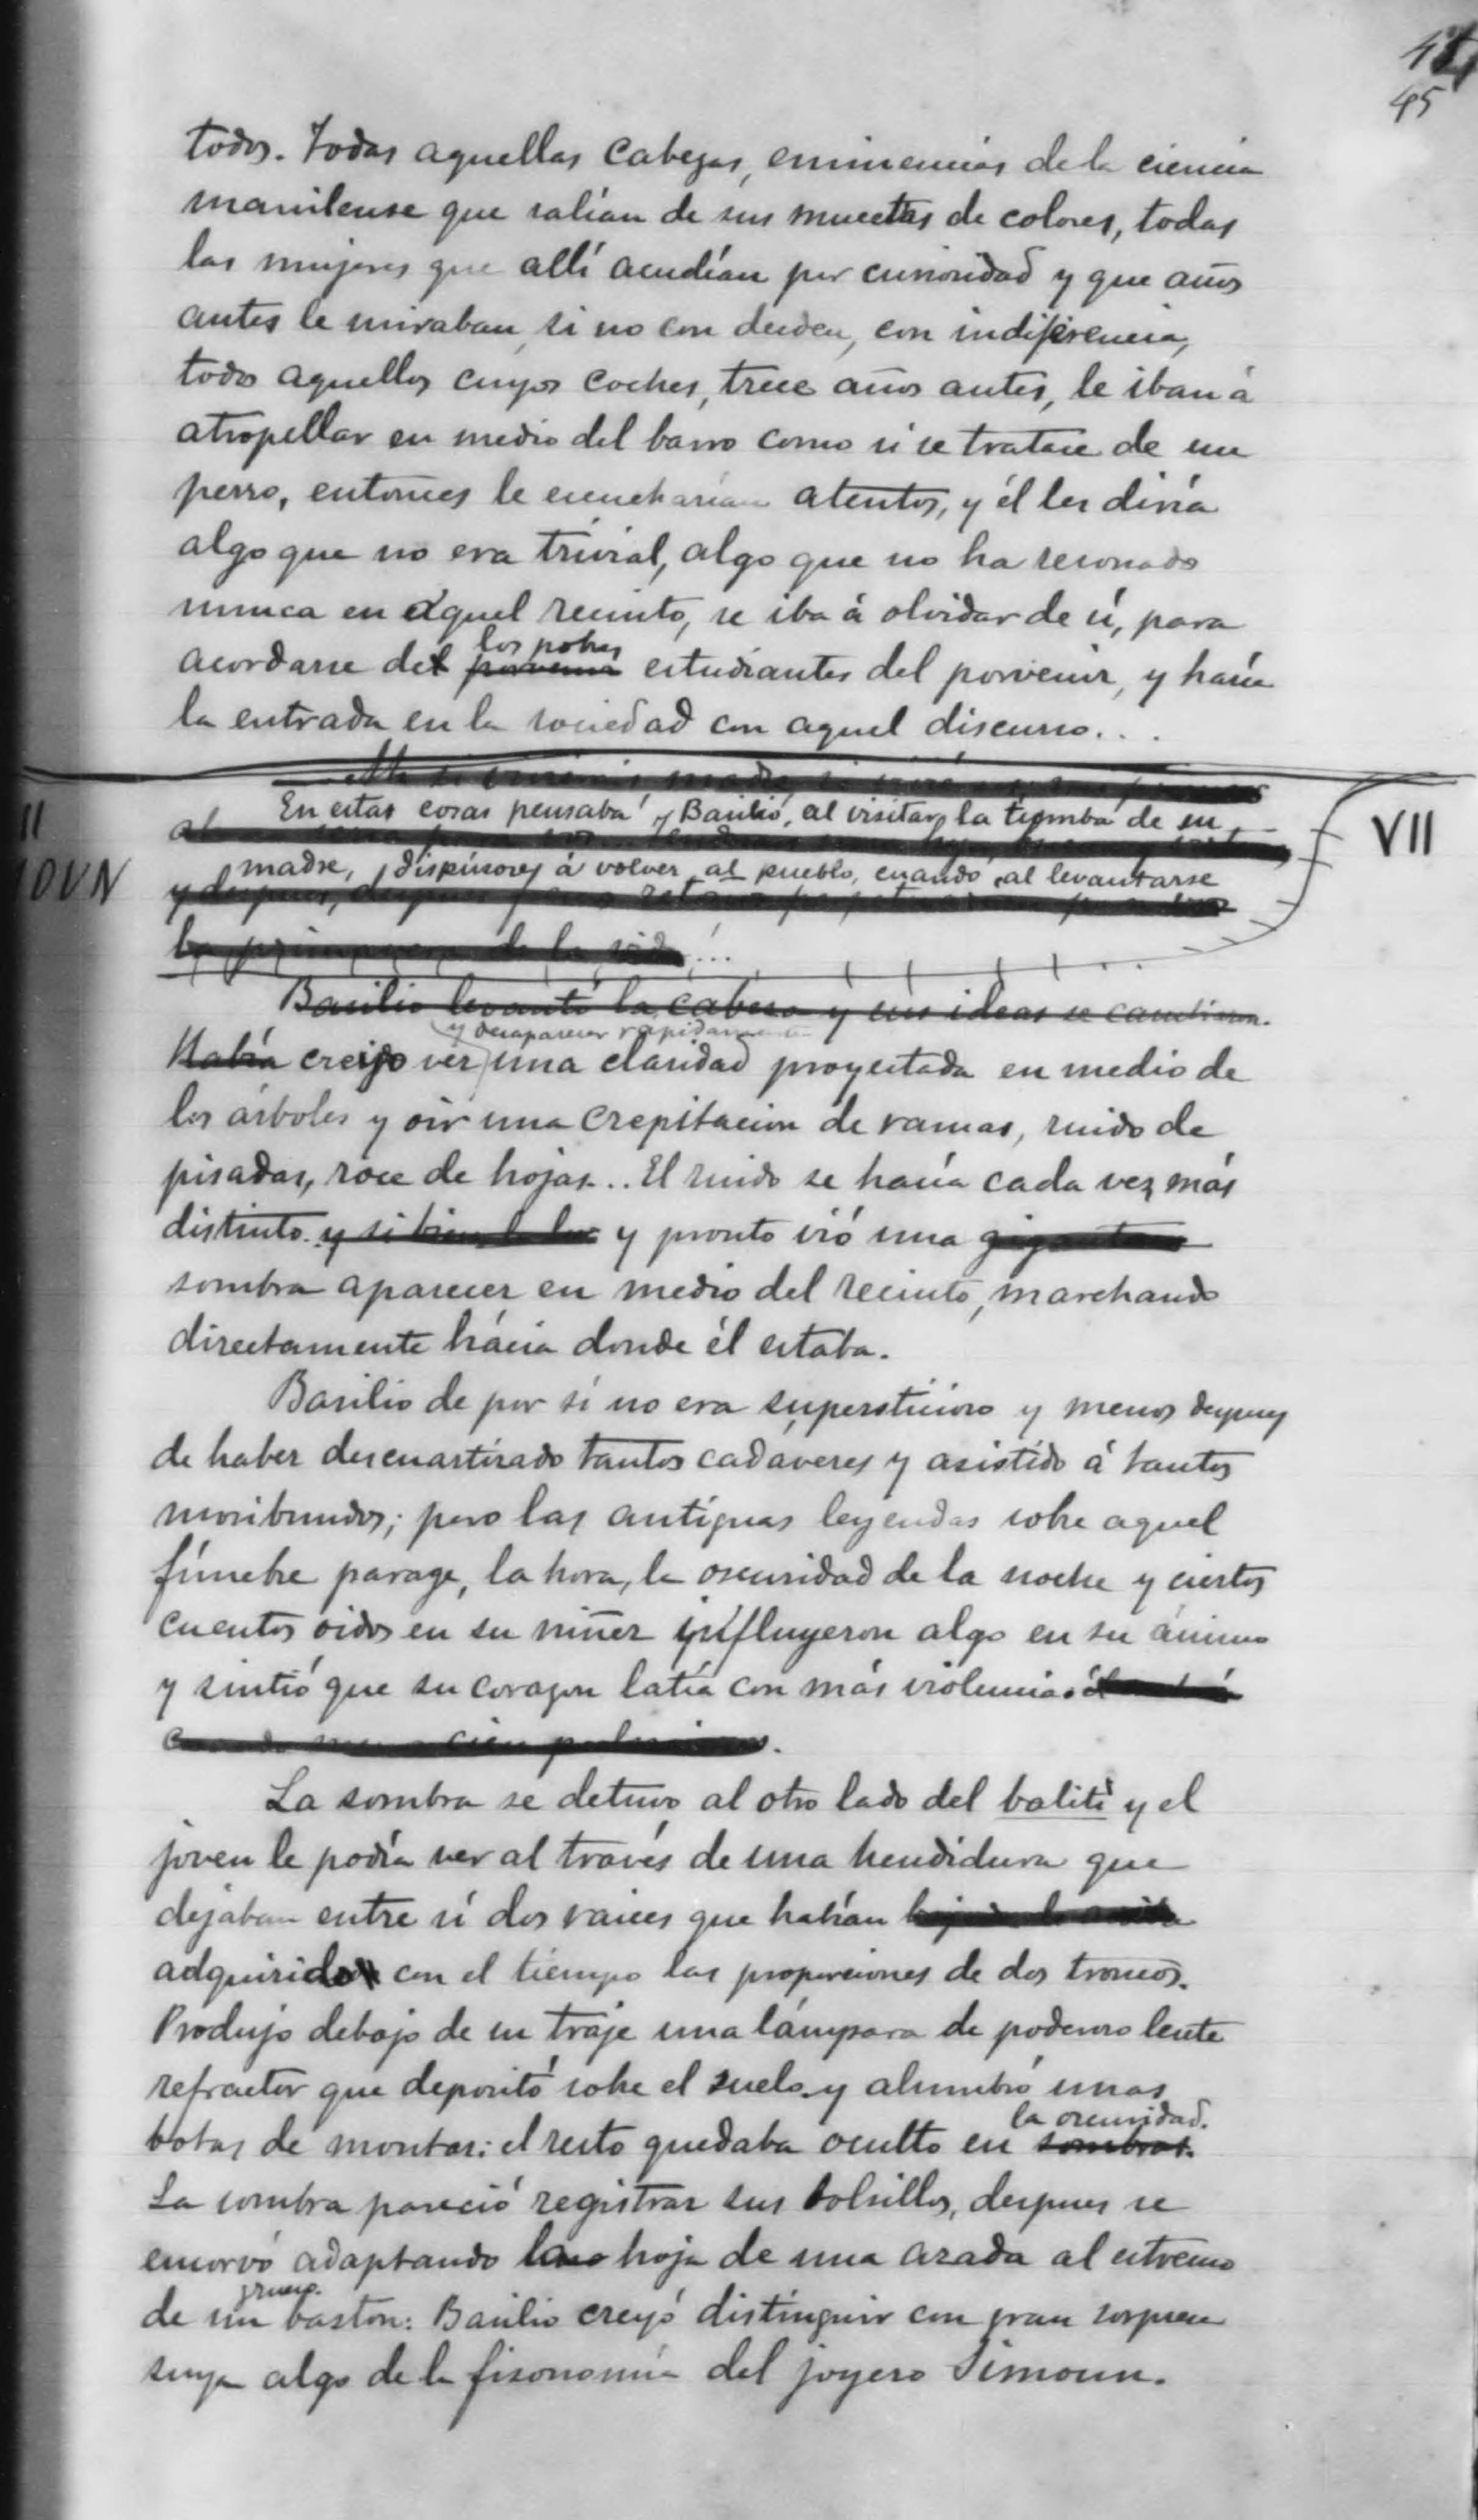 45
todos. Todas aquellas cabezas, eminencias de la ciencia
manilense que salían de sus mucetas de colores, todas
las mujeres que allí acudían por curiosidad y que años
antes le miraban, si no con desden, con indiferencia,
todos aquellos cuyos coches, trece años antes, le iban á
atropellar en medio del barro como si se tratase de un
perro, entonces le escucharían atentos, y él les diría
algo que no era trivial, algo que no ha resonado
nunca en aquel recinto, se iba á olvidar de sí, para
los pobres
acordarse del porvenir estudiantes del porvenir, y haría
la entrada en la sociedad con aquel discurso...
En estas cosas pensaba Basilio, al visitar la tumba de su
VII
madre, dispúsose á volver al pueblo, cuando al levantarse
la primavera de la vida!...
Basilio levantó la cabeza y sus ideas se cambiaron.
y desaparecer rapidamente
Había creyó ver una claridad proyectada en medio de
los árboles y oir una crepitacion de ramas, ruido de
pisadas, roce de hojas... El ruido se hacía cada vez más
distinto. y si bien la luz y pronto vió una gigantesca
sombra aparecer en medio del recinto, marchando
directamente hácia donde él estaba.
Basilio de por sí no era supersticioso y menos despues
de haber descuartizado tantos cadáveres y asistido á tantos
moribundos; pero las antiguas leyendas sobre aquel
fúnebre parage, la hora, la oscuridad de la noche y ciertos
cuentos oidos en su niñez influyeron algo en su ánimo
y sintió que su corazon latía con más violencia
La sombra se detuvo al otro lado del balitì y el
joven le podía ver al través de una hendidura que
dejaban entre sí dos raices que habían
adquirido con el tiempo las proporciones de dos troncos.
Produjo debajo de su traje una lámpara de poderoso lente
refractor que depositó sobre el suelo y alumbró unas
la oscuridad.
botas de montar: el resto quedaba oculto en sombras.
La sombra pareció registrar sus bolsillos, despues se
encorvó adaptando la hoja de una azada al estremo
grueso.
de un baston: Basilio creyó distinguir con gran sorpresa
suya algo de la fisonomía del joyero Simoun.